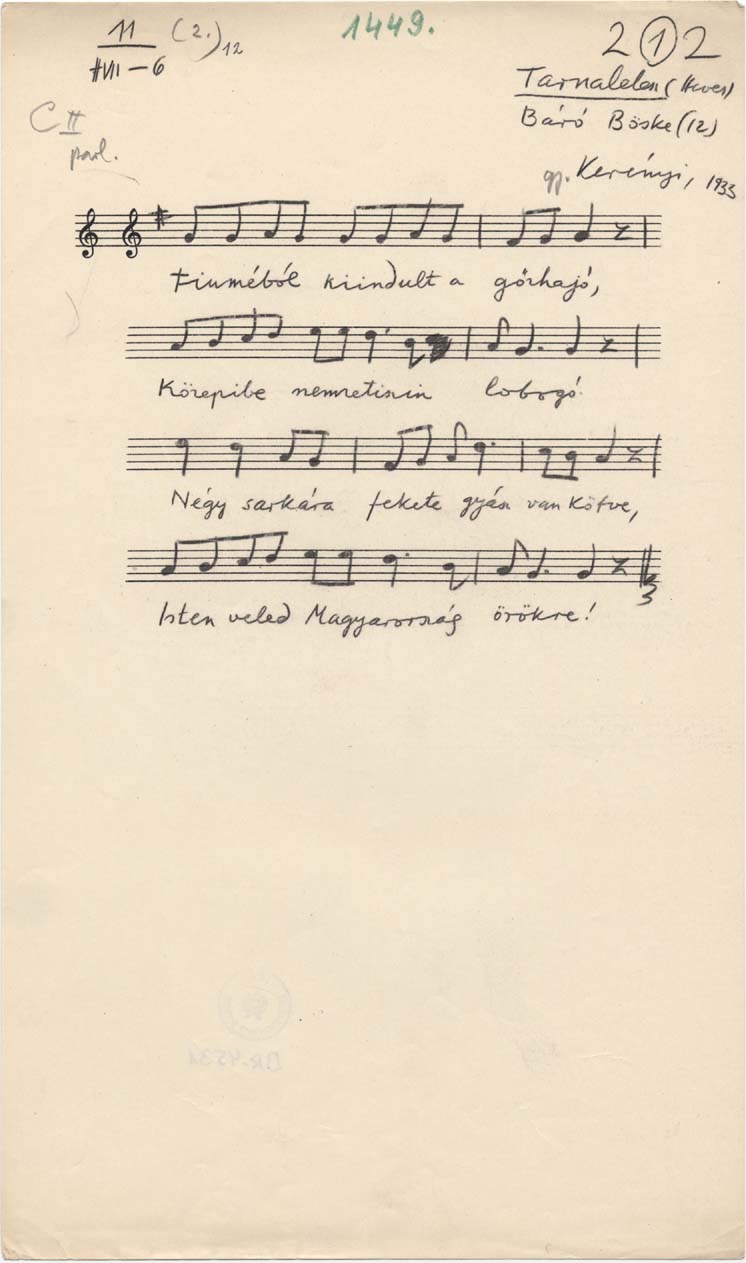 11 (2.)12
VII - 6
1449.
2 1 2
Tarnalelesz (Heves)
Báró Böske (12)
gy. Kerényi, 1933
C II
parl.
Fiuméból kiindult a gőzhajó,
Közepibe nemzetiszin lobogó.
Négy sarkára fekete gyász van kötve,
Isten veled Magyarország örökre!